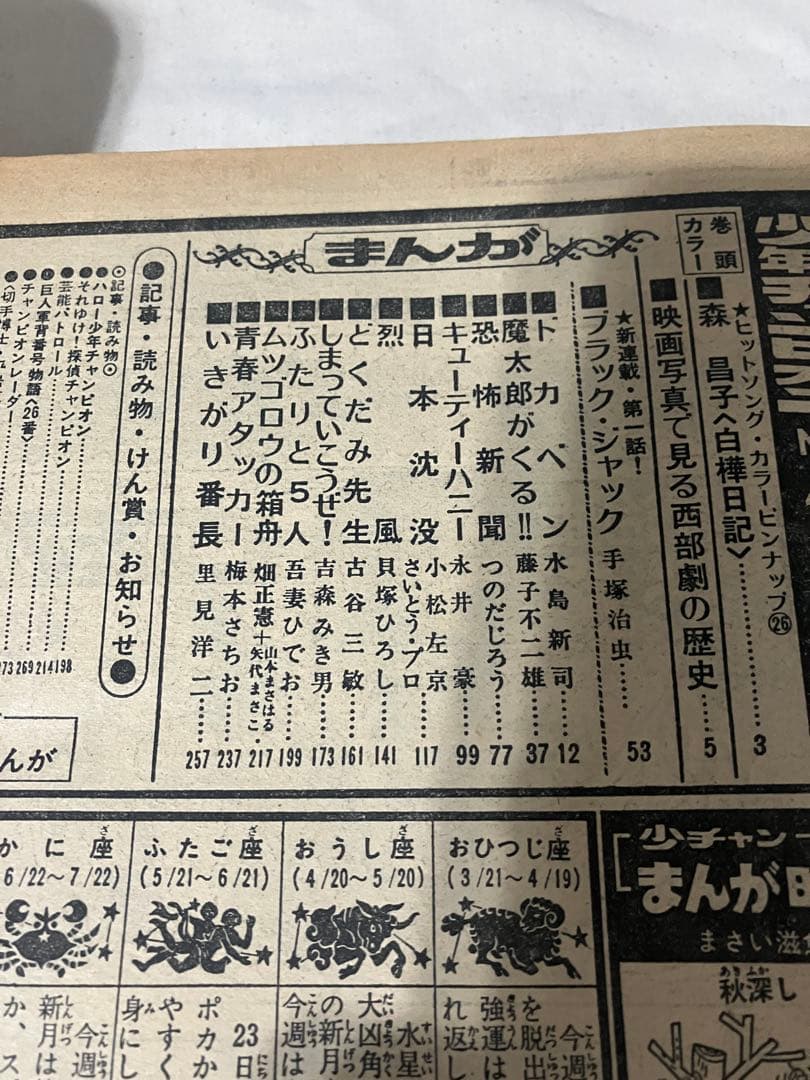 少年チャンピオン
巻頭カラー
★ヒットソング・カラーピンナップ㉖
■森 昌子〈白樺日記〉………3
■映画写真で見る西部劇の歴史……5
まんが
★新連載・第一話!
■ブラック・ジャック 手塚治虫……53
■ドカベン 水島新司……12
■魔太郎がくる!! 藤子不二雄……37
■恐怖新聞 つのだじろう……77
■キューティーハニー 永井豪……99
■日本沈没 小松左京 さいとう・プロ……117
■烈風 貝塚ひろし……141
■どくだみ先生 古谷三敏……161
■しまっていこうぜ! 吉森みき男……173
■ふたりと5人 吾妻ひでお……199
■ムツゴロウの箱舟 畑正憲+山本まさはる 矢代まさこ…217
■青春アタッカー 梅本さちお……237
■いきがり番長 里見洋二……257
●記事・読み物・けん賞・お知らせ●
⊙記事・読み物⊙
●ハロー少年チャンピオン
●それゆけ!探偵チャンピオン
●芸能パトロール………198
●巨人軍背番号物語〈26番〉………214
●チャンピオンレーダー………269
273
んが
おひつじ座
(3/21〜4/19)
おうし座
(4/20〜5/20)
ふたご座
(5/21〜6/21)
かに座
6/22〜7/22)
今週
を脱出
強運は
れ返し
水星
大凶角
の新月
今週は
23日
ポカか
やすく
身にし
今週
新月は
か、ス
少チャン
まんが
まさい滋
秋深し